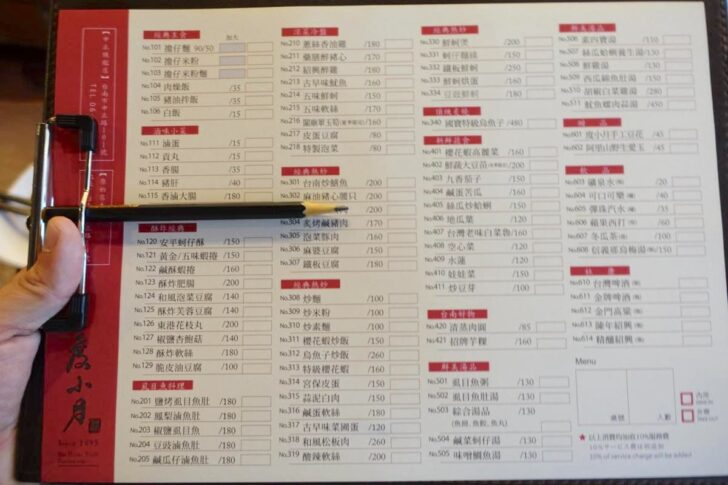 經典主食 加大
No.101 擔仔麵 90/50
No.102 擔仔米粉
No.103 擔仔米粉麵
No.104 肉燥飯 /35
No.105 豬油拌飯 /35
No.106 白飯 /15
滷味小菜
No.111 滷蛋 /15
No.112 貢丸 /15
No.113 香腸 /35
No.114 豬肝 /40
No.115 香滷大腸 /180
酥炸經典
No.120 安平蚵仔酥 /150
No.121 黃金/五味蝦捲 /160
No.122 鹹酥蝦捲 /160
No.123 酥炸肥腸
No.124 和風泡菜豆腐 /140
No.125 酥炸芙蓉豆腐 /140
No.126 東港花枝丸 /200
No.127 椒鹽杏鮑菇 /140
No.128 酥炸軟絲 /180
No.129 脆皮油豆腐 /100
虱目魚料理
No.201 鹽烤虱目魚肚 /180
No.202 鳳梨滷魚肚 /180
No.203 椒鹽虱目魚 /180
No.204 豆豉滷魚肚 /180
No.205 鹹瓜仔滷魚肚 /180
涼菜冷盤
No.210 蔥絲香油雞 /180
No.211 藥膳醉豬心 /170
No.212 紹興醉雞 /160
No.213 古早味魷魚 /160
No.214 五味鮮蚵 /160
No.215 五味軟絲 /170
No.217 皮蛋豆腐 /80
No.218 特製泡菜 /80
經典熱炒
No.301 台南炒鱔魚 /200
No.302 麻油豬心腰只 /200
/200
No.304 炙烤鹹豬肉 /170
No.305 泡菜豚肉 /160
No.306 麻婆豆腐 /150
No.307 鐵板豆腐 /150
經典熱炒
No.308 炒麵 /100
No.309 炒米粉 /100
No.310 炒素麵 /100
No.311 櫻花蝦炒飯 /150
No.312 烏魚子炒飯 /160
No.313 特級櫻花蝦 /160
No.314 宮保皮蛋 /140
No.315 蒜泥白肉 /150
No.316 鹹蛋軟絲 /180
No.317 古早味菜圃蛋 /120
No.318 和風松板肉 /170
No.319 酸辣軟絲 /170
經典熱炒
No.330 鮮蚵煲 /200
No.331 蚵仔麵線 /150
No.332 鐵板鮮蚵 /250
No.333 鮮蚵烘蛋 /160
No.334 豆豉鮮蚵 /180
No.340 國寶特級烏魚子 /480
新鮮蔬食
No.401 櫻花蝦高麗菜 /160
No.403 九香茄子 /150
No.404 鹹蛋苦瓜 /160
No.405 絲瓜炒蛤蜊 /150
No.406 地瓜葉 /120
No.407 台灣老味白菜魯 /160
No.408 空心菜 /120
No.409 水蓮 /120
No.410 娃娃菜 /150
No.411 炒豆芽 /100
台南好物
No.420 清蒸肉圓 /85
No.421 招牌芋粿 /160
鮮美湯品
No.501 虱目魚粥 /130
No.502 虱目魚肚湯 /130
No.503 綜合湯品 /130
(魚肚,魚餃,魚丸)
No.504 鹹菜蚵仔湯 /130
No.505 味噌鯛魚湯 /130
鮮美湯品
No.506 素四寶湯 /130
No.507 絲瓜蛤蠣養生湯 /130
No.508 鮮雞湯 /130
No.509 西瓜綿魚肚湯 /130
No.510 胡椒白菜雞湯 /250
No.511 魷魚螺肉蒜湯 /450
甜品
No.601 度小月手工豆花 /45
No.602 阿里山野生愛玉 /45
飲品
No.603 礦泉水 /20
No.604 可口可樂 /40
No.605 彈珠汽水 /35
No.606 蘋果西打 /60
No.607 冬瓜茶 /100
No.608 信義鄉烏梅湯 /150
No.610 台灣啤酒
No.611 金牌啤酒
No.612 金門高粱
No.613 陳年紹興
No.614 精釀紹興
Menu
桌號 人數
內用
外帶
★以上消費均加收10%服務費
10% of service charge will be added
度小月
Since 1895